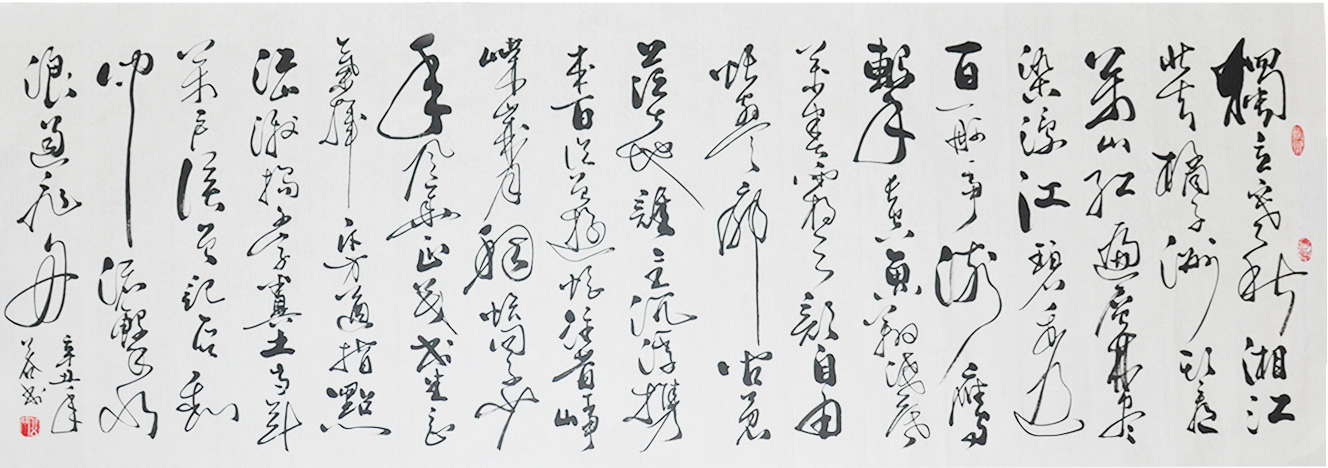 獨立寒秋湘江
北去橘子洲頭看
萬山紅遍層林盡
染漫江碧透
百舸爭流鷹
擊長空魚翔淺底
萬類霜天競自由
悵寥廓問蒼
茫大地誰主沉浮攜
來百侶曾遊憶往昔崢
嶸歲月稠恰同學少
年風華正茂書生意
氣揮斥方遒指點
江山激揚文字糞土當年
萬戶侯曾記否到
中流擊水
浪遏飛舟
辛丑年
書